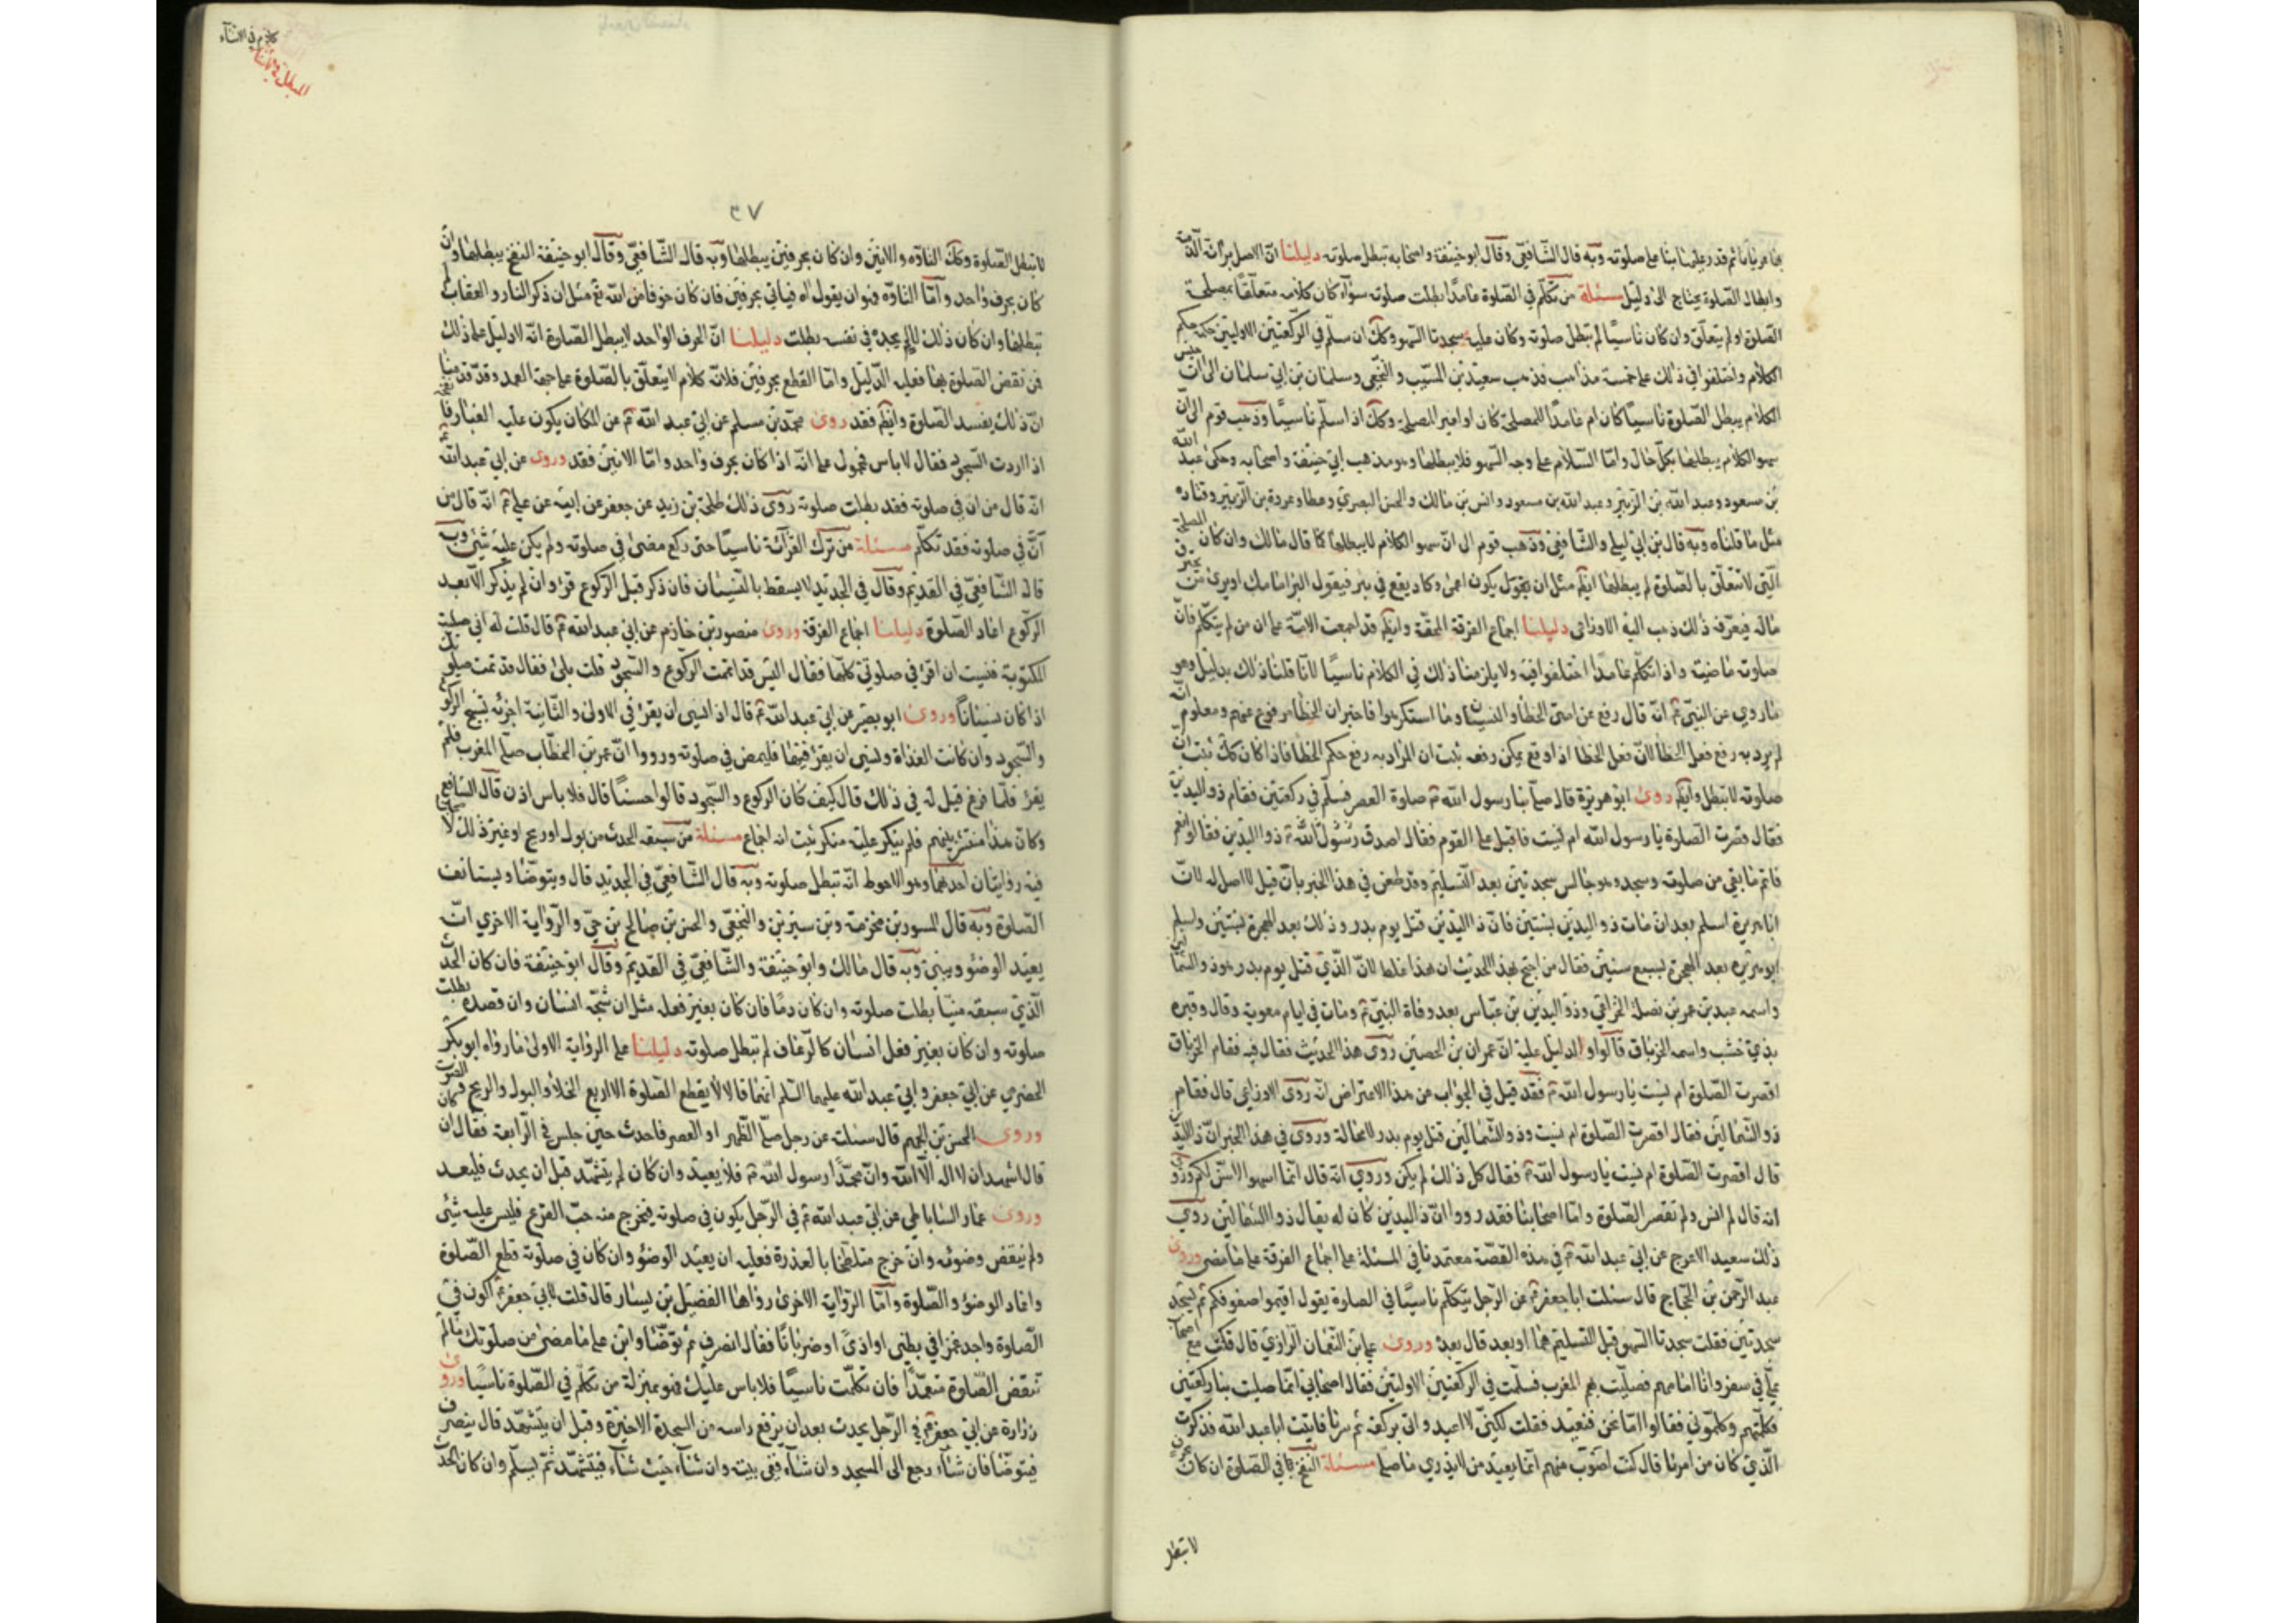 وابطال الصلوة يحتاج الى دليل مسئلة من تكلم في الصلوة عامدًا بطلت صلوته سوآء كان كلامه متعلقًا بمصلحة
الصلوة او لم يتعلق وان كان ناسيًا لم تبطل صلوته وكان عليه سجدتا السهو وكك ان سلم في الركعتين الاوليين
الكلام واختلفوا في ذلك على خمسة مذاهب فذهب سعيد بن المسيب والنخعي وسلمان بن ابي سلمان الى ان
الكلام يبطل الصلوة ناسيًا كان ام عامدًا لمصلحة كان او لغير المصلحة وكك اذا سلم ناسيًا وذهب قوم الى ان
سهو الكلام يبطلها بكل حال واما السلام على وجه السهو فلا يبطلها وهو مذهب ابي حنيفة واصحابه وحكى عبد الله
بن مسعود وعبد الله بن الزبير وعبد الله بن مسعود وانس بن مالك والحسن البصري وعطا وعروة بن الزبير وقتاده
مثل ما قلناه وبه قال بن ابي ليلى والشافعي وذهب قوم الى ان سهو الكلام لا يبطلها كما قال مالك وان كان لمصلحة
مالة فيعرفه ذلك ذهب اليه الاوزاعي دليلنا اجماع الفرقة المحقة وايضًا قد اجمعت الامة على ان من لم يتكلم فان
صلوته ماضية واذا تكلم عامدًا اختلفوا فيه ولا يلزمنا ذلك في الكلام ناسيًا لانا قلنا ذلك بدليل وهو
ما روي عن النبي ص انه قال رفع عن امتي الخطأ والنسيان وما استكرهوا فاخبر ان الخطأ مرفوع عنهم ومعلوم انه
لم يرد به رفع فعل الخطأ لان فعل الخطا اذا وقع يمكن رفعه ثبت ان المراد به رفع حكم الخطا فاذا كان كك ثبت ان
صلوته لا تبطل وايضًا روى ابو هريرة قال صلى بنا رسول الله ص صلوة العصر فسلم في ركعتين فقام ذو اليدين
فقال قصرت الصلوة يا رسول الله ام نسيت فاقبل على القوم فقال اصدق رسول الله ص ذو اليدين فقالوا نعم
فاتم ما بقي من صلوته وسجد وهو جالس سجدتين بعد التسليم وقد طعن في هذا الخبر بان قيل لا اصل له لان
ابا هريرة اسلم بعد ان مات ذو اليدين بسنتين فان ذا اليدين قتل يوم بدر وذلك بعد الهجرة بسنتين واسلم
ابو هريره بعد الهجرة بسبع سنين فقال من احتج بهذا الحديث ان هذا غلط لان الذي قتل يوم بدر هو ذو الشمالين
واسمه عبد بن عمر بن نضلة الخزاعي وذو اليدين بن عباس بعد وفاة النبي ص ومات في ايام معوية وقال وقبره
بذي خشب واسمه الخرباق قالوا والدليل عليه ان عمران بن الحصين روى هذا الحديث فقال فيه فقام الخرباق
اقصرت الصلوة ام نسيت يا رسول الله ص فقد قيل في الجواب عن هذا الاعتراض انه روى الاوزاعي قال فقام
ذو الشمالين فقال اقصرت الصلوة ام نسيت وذو الشمالين قتل يوم بدر لا محالة وروي في هذا الخبر ان ذا اليدين
قال اقصرت الصلوة ام نسيت يا رسول الله ص فقال كل ذلك لم يكن وروي انه قال انما اسهو لاسن لكم وروي
انه قال لم انس ولم تقصر الصلوة واما اصحابنا فقد رووا ان ذا اليدين كان له يقال ذو الشمالين روى
ذلك سعيد الاعرج عن ابي عبد الله ع في هذه القصة معتمدنا في المسئلة على اجماع الفرقة على ما مضى وروى
عبد الرحمن بن الحجاج قال سئلت ابا جعفر ع عن الرجل يتكلم ناسيًا في الصلوة يقول اقيموا صفوفكم ثم يسجد
سجدتين فقلت سجدتا السهو قبل التسليم هما او بعد قال بعد وروى علي بن النعمان الرازي قال كنت مع اصحاب
لي في سفر وانا امامهم فصليت بهم المغرب فسلمت في الركعتين الاوليتين فقال اصحابي انما صليت بنا ركعتين
فكلمتهم وكلموني فقالوا اما نحن فنعيد فقلت لكني لا اعيد واتم بركعة ثم سرنا فاتيت ابا عبد الله فذكرت
الذي كان من امرنا قال كنت اصوب منهم انما يعيد من لا يدري ما صلى مسئلة النفخ في الصلوة ان كان
لا تبطل
كلام في الانشآء
٧٣
لا تبطل الصلوة وكك التاوه والانين وان كان بحرفين يبطلها وبه قال الشافعي وقال ابو حنيفة النفخ يبطلها وان
كان بحرف واحد واما التاوه فهو ان يقول اه فياتي بحرفين فان كان خوفا من الله تع مثل ان ذكر النار والعقاب لم
تبطلها وان كان ذلك لالم يجده في نفسه بطلت دليلنا ان الحرف الواحد لا يبطل الصلوة انه لا دليل على ذلك
فمن نقض الصلوة بها فعليه الدليل واما القطع بحرفين فلانه كلام لا يتعلق بالصلوة على جهة العمد وقد قدمنا
ان ذلك يفسد الصلوة وايضًا فقد روى محمد بن مسلم عن ابي عبد الله ع عن المكان يكون عليه الغبار فانفخه
اذا اردت السجود فقال لا باس فمحمول على انه اذا كان بحرف واحد واما الانين فقد وروى عن ابي عبد الله
انه قال من ان في صلوته فقد بطلت صلوته روى ذلك طلحة بن زيد عن جعفر عن ابيه عن علي ع انه قال من
أنّ في صلوته فقد تكلم مسئلة من ترك القرآئة ناسيًا حتى ركع مضى في صلوته ولم يكن عليه شئ وبه
قال الشافعي في القديم وقال في الجديد لا يسقط بالنسيان فان ذكر قبل الركوع قرء وان لم يذكر الا بعد
الركوع اعاد الصلوة دليلنا اجماع الفرقة وروى منصور بن حازم عن ابي عبد الله ع قال قلت له اني صليت
المكتوبة فنسيت ان اقرء في صلوتي كلها فقال اليس قد اتممت الركوع والسجود قلت بلى فقال قد تمت صلوتك
اذا كان نسيانًا وروى ابو بصير عن ابي عبد الله ع قال اذا نسي ان يقرء في الاولى والثانية اجزئه تسبيح الركوع
والسجود وان كانت الغداة ونسي ان يقرء فيها فليمض في صلوته ورووا ان عمر بن الخطاب صلى المغرب فلم
يقرء فلما فرغ قيل له في ذلك قال كيف كان الركوع والسجود قالوا حسنًا قال فلا باس اذن قال الشافعي
وكان هذا منتشر بينهم فلم ينكر عليه منكر ثبت انه اجماع مسئلة من سبقه الحدث من بول او ريح او غير ذلك لاصحابنا
فيه روايتان احدهما وهو الاحوط انه تبطل صلوته وبه قال الشافعي في الجديد قال ويتوضأ ويستانف
الصلوة وبه قال المسور بن مخرمة وبن سيرين والنخعي والحسن بن صالح بن حي والرواية الاخري انه
يعيد الوضؤ ويبني وبه قال مالك وابو حنيفة والشافعي في القديم وقال ابو حنيفة فان كان الحدث
الذي سبقه منيًا بطلت صلوته وان كان دمًا فان كان بغير فعله مثل ان شجه انسان وان قصده بطلت
صلوته وان كان بغير فعل انسان كالرعاف لم تبطل صلوته دليلنا على الرواية الاولى ما رواه ابو بكر
الحضرمي عن ابي جعفر وابي عبد الله عليهما السلم انهما قالا لا يقطع الصلوة الا اربع الخلاء والبول والريح والصوت
وروى الحسن بن الجهم قال سئلت عن رجل صلى الظهر او العصر فاحدث حين جلس في الرابعة فقال ان كان
قال اشهد ان لا اله الا الله وان محمدًا رسول الله ص فلا يعيد وان كان لم يتشهد قبل ان يحدث فليعد
وروى عمار الساباطي عن ابي عبد الله ع في الرجل يكون في صلوته فيخرج منه حب القرع فليس عليه شئ
ولم ينقض وضوئه وان خرج متلطخا بالعذرة فعليه ان يعيد الوضؤ وان كان في صلوته قطع الصلوة
واعاد الوضؤ والصلوة واما الرواية الاخرى رواها الفضيل بن يسار قال قلت لابي جعفر ع اكون في
الصلوة واجد غمزا في بطني او اذى او ضربانًا فقال انصرف ثم توضأ وابن على ما مضى من صلوتك ما لم
تنقض الصلوة متعمدًا فان تكلمت ناسيًا فلا باس عليك فهو بمنزلة من تكلم في الصلوة ناسيًا وروى
زرارة عن ابي جعفر ع في الرجل يحدث بعد ان يرفع راسه من السجدة الاخيرة وقبل ان يتشهد قال ينصرف
فيتوضأ فان شآء رجع الى المسجد وان شآء ففي بيته وان شآء حيث شآء فيتشهد ثم يسلم وان كان الحدث